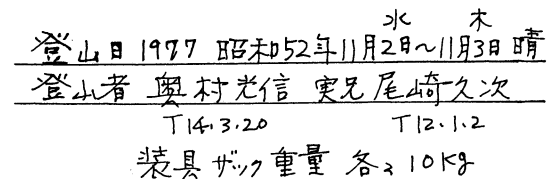 水 木
登山日 1977 昭和52年11月2日~11月3日 晴
登山者 奥村光信 実兄 尾崎久次
T14.3.20 T12.1.2
装具 ザック重量 各々10Kg